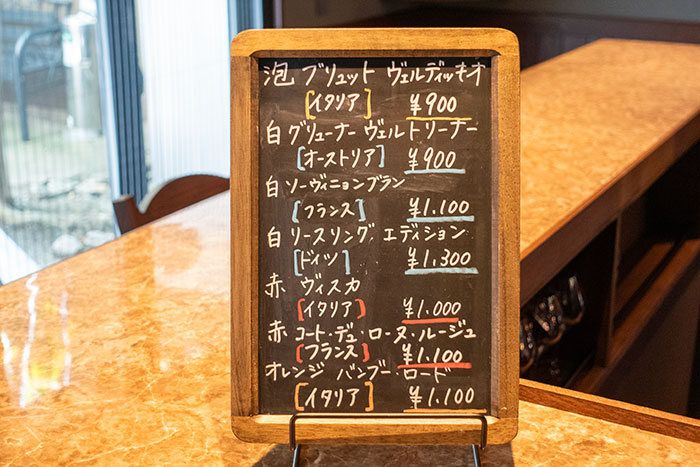 泡 ブリュット ヴェルディッキオ
[イタリア] ¥900
白 グリューナー ヴェルトリーナー
[オーストリア] ¥900
白 ソーヴィニョンブラン
[フランス] ¥1.100
白 リースリング エディション
[ドイツ] ¥1.300
赤 ヴィスカ
[イタリア] ¥1.000
赤 コート・デュ・ローヌ・ルージュ
[フランス] ¥1.100
オレンジ バンブー・ロード
[イタリア] ¥1.100